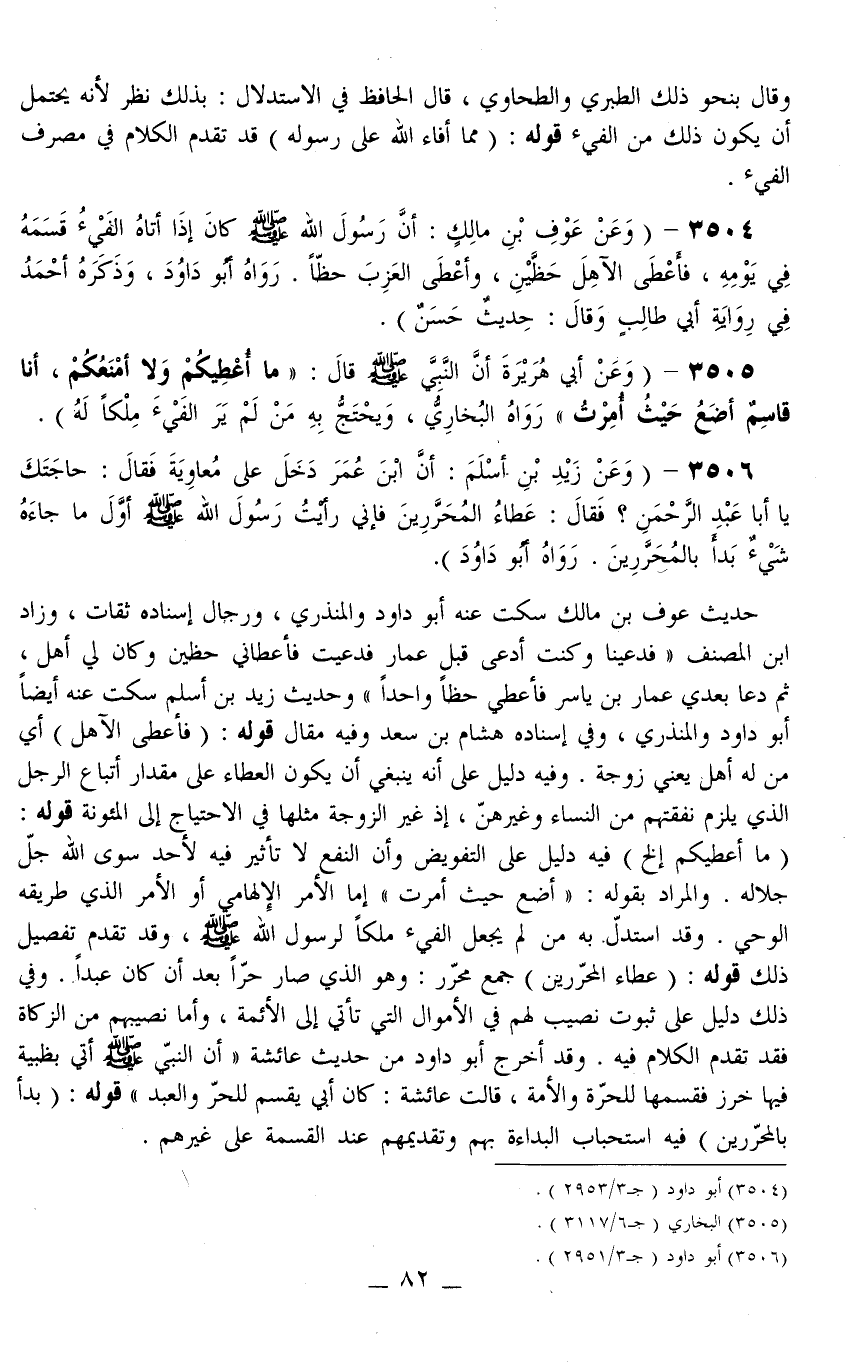 وقال بنحو ذلك الطبري والطحاوي ، قال الحافظ في الاستدلال : بذلك نظر لأنه يحتمل
أن يكون ذلك من الفيء قوله : ( مما أفاء الله على رسوله ) قد تقدم الكلام في مصرف
الفيء .
٣٥٠٤ – ( وَعَنْ عَوْفِ بْنِ مالِكٍ : أنَّ رَسُولَ الله ﷺ كانَ إذَا أتاهُ الفَيْءُ قَسَمَهُ
فِي يَوْمِهِ ، فأَعْطَى الآهِلَ حَظَّيْنِ ، وأعْطَى العَزِبَ حظّاً . رَوَاهُ أبُو دَاوُدَ ، وَذَكَرَهُ أحْمَدُ
فِي رِوَايَةِ أبي طالِبٍ وَقالَ : حِديثٌ حَسَنٌ ) .
٣٥٠٥ – ( وَعَنْ أبي هُرَيْرَةَ أنَّ النَّبِيَّ ﷺ قالَ : « ما أُعْطِيكُمْ وَلا أمْنَعُكُمْ ، أنا
قاسِمٌ أضَعُ حَيْثُ أُمِرْتُ » رَوَاهُ البُخارِيُّ ، وَيحْتَجُّ بِهِ مَنْ لَمْ يَرَ الفَيْءَ مِلْكاً لَهُ ) .
٣٥٠٦ – ( وَعَنْ زَيْدِ بْنِ أسْلَمَ : أنَّ ابْنَ عُمَرَ دَخَلَ على مُعاوِيَةَ فَقالَ : حاجَتَكَ
يا أبا عَبْدِ الرَّحْمَنِ ؟ فَقالَ : عَطاءُ المُحَرَّرِينَ فإني رأيْتُ رَسُولَ الله ﷺ أوَّلَ ما جاءَهُ
شَيْءٌ بَدأَ بالمُحَرَّرِينَ . رَوَاهُ أبُو دَاوُدَ ).
حديث عوف بن مالك سكت عنه أبو داود والمنذري ، ورجال إسناده ثقات ، وزاد
ابن المصنف « فدعينا وكنت أدعى قبل عمار فدعيت فأعطاني حظين وكان لي أهل ،
ثم دعا بعدي عمار بن ياسر فأعطي حظاً واحداً » وحديث زيد بن أسلم سكت عنه أيضاً
أبو داود والمنذري ، وفي إسناده هشام بن سعد وفيه مقال قوله : ( فأعطى الآهل ) أي
من له أهل يعني زوجة . وفيه دليل على أنه ينبغي أن يكون العطاء على مقدار أتباع الرجل
الذي يلزم نفقتهم من النساء وغيرهنّ ، إذ غير الزوجة مثلها في الاحتياج إلى المئونة قوله :
( ما أعطيكم إلخ ) فيه دليل على التفويض وأن النفع لا تأثير فيه لأحد سوى الله جلّ
جلاله . والمراد بقوله : « أضع حيث أمرت » إما الأمر الإلهامي أو الأمر الذي طريقه
الوحي . وقد استدلّ به من لم يجعل الفيء ملكاً لرسول الله ﷺ ، وقد تقدم تفصيل
ذلك قوله : ( عطاء المحرّرين ) جمع محرّر : وهو الذي صار حرّاً بعد أن كان عبداً . وفي
ذلك دليل على ثبوت نصيب لهم في الأموال التي تأتي إلى الأئمة ، وأما نصيبهم من الزكاة
فقد تقدم الكلام فيه . وقد أخرج أبو داود من حديث عائشة « أن النبيّ ﷺ أتي بظبية
فيها خرز فقسمها للحرّة والأمة ، قالت عائشة : كان أبي يقسم للحرّ والعبد » قوله : ( بدأ
بالمحرّرين ) فيه استحباب البداءة بهم وتقديمهم عند القسمة على غيرهم .
(٣٥٠٤) أبو داود ( جـ٢٩٥٣/٣ ) .
(٣٥٠٥) البخاري ( جـ٣١١٧/٦ ) .
(٣٥٠٦) أبو داود ( جـ٢٩٥١/٣ ) .
– ٨٢ –